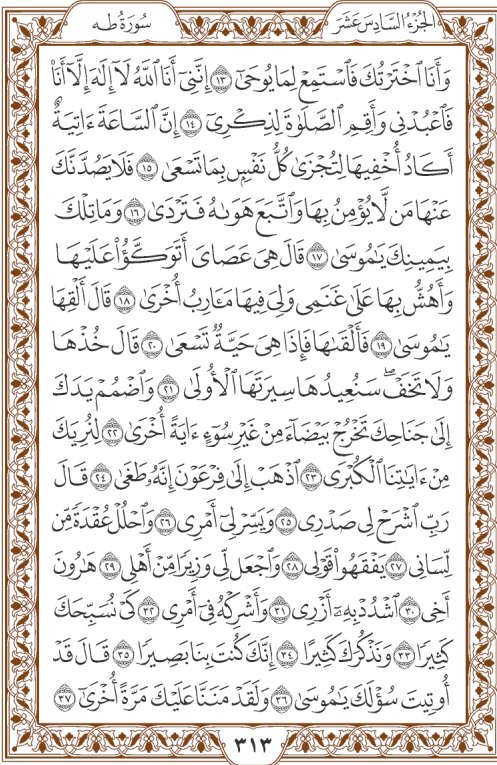 الجُزْءُ السَّادِسَ عَشَرَ
سُورَةُ طه
وَأَنَا ٱخْتَرْتُكَ فَٱسْتَمِعْ لِمَا يُوحَىٰٓ ١٣ إِنَّنِىٓ أَنَا ٱللَّهُ لَآ إِلَٰهَ إِلَّآ أَنَا۠
فَٱعْبُدْنِى وَأَقِمِ ٱلصَّلَوٰةَ لِذِكْرِىٓ ١٤ إِنَّ ٱلسَّاعَةَ ءَاتِيَةٌ
أَكَادُ أُخْفِيهَا لِتُجْزَىٰ كُلُّ نَفْسٍۭ بِمَا تَسْعَىٰ ١٥ فَلَا يَصُدَّنَّكَ
عَنْهَا مَن لَّا يُؤْمِنُ بِهَا وَٱتَّبَعَ هَوَىٰهُ فَتَرْدَىٰ ١٦ وَمَا تِلْكَ
بِيَمِينِكَ يَٰمُوسَىٰ ١٧ قَالَ هِىَ عَصَاىَ أَتَوَكَّؤُا۟ عَلَيْهَا
وَأَهُشُّ بِهَا عَلَىٰ غَنَمِى وَلِىَ فِيهَا مَـَٔارِبُ أُخْرَىٰ ١٨ قَالَ أَلْقِهَا
يَٰمُوسَىٰ ١٩ فَأَلْقَىٰهَا فَإِذَا هِىَ حَيَّةٌ تَسْعَىٰ ٢٠ قَالَ خُذْهَا
وَلَا تَخَفْ ۖ سَنُعِيدُهَا سِيرَتَهَا ٱلْأُولَىٰ ٢١ وَٱضْمُمْ يَدَكَ
إِلَىٰ جَنَاحِكَ تَخْرُجْ بَيْضَآءَ مِنْ غَيْرِ سُوٓءٍ ءَايَةً أُخْرَىٰ ٢٢ لِنُرِيَكَ
مِنْ ءَايَٰتِنَا ٱلْكُبْرَى ٢٣ ٱذْهَبْ إِلَىٰ فِرْعَوْنَ إِنَّهُۥ طَغَىٰ ٢٤ قَالَ
رَبِّ ٱشْرَحْ لِى صَدْرِى ٢٥ وَيَسِّرْ لِىٓ أَمْرِى ٢٦ وَٱحْلُلْ عُقْدَةً مِّن
لِّسَانِى ٢٧ يَفْقَهُوا۟ قَوْلِى ٢٨ وَٱجْعَل لِّى وَزِيرًا مِّنْ أَهْلِى ٢٩ هَٰرُونَ
أَخِى ٣٠ ٱشْدُدْ بِهِۦٓ أَزْرِى ٣١ وَأَشْرِكْهُ فِىٓ أَمْرِى ٣٢ كَىْ نُسَبِّحَكَ
كَثِيرًا ٣٣ وَنَذْكُرَكَ كَثِيرًا ٣٤ إِنَّكَ كُنتَ بِنَا بَصِيرًا ٣٥ قَالَ قَدْ
أُوتِيتَ سُؤْلَكَ يَٰمُوسَىٰ ٣٦ وَلَقَدْ مَنَنَّا عَلَيْكَ مَرَّةً أُخْرَىٰٓ ٣٧
٣١٣